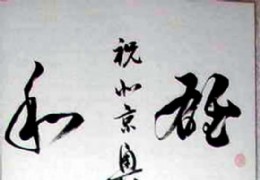 祝北京奥
和